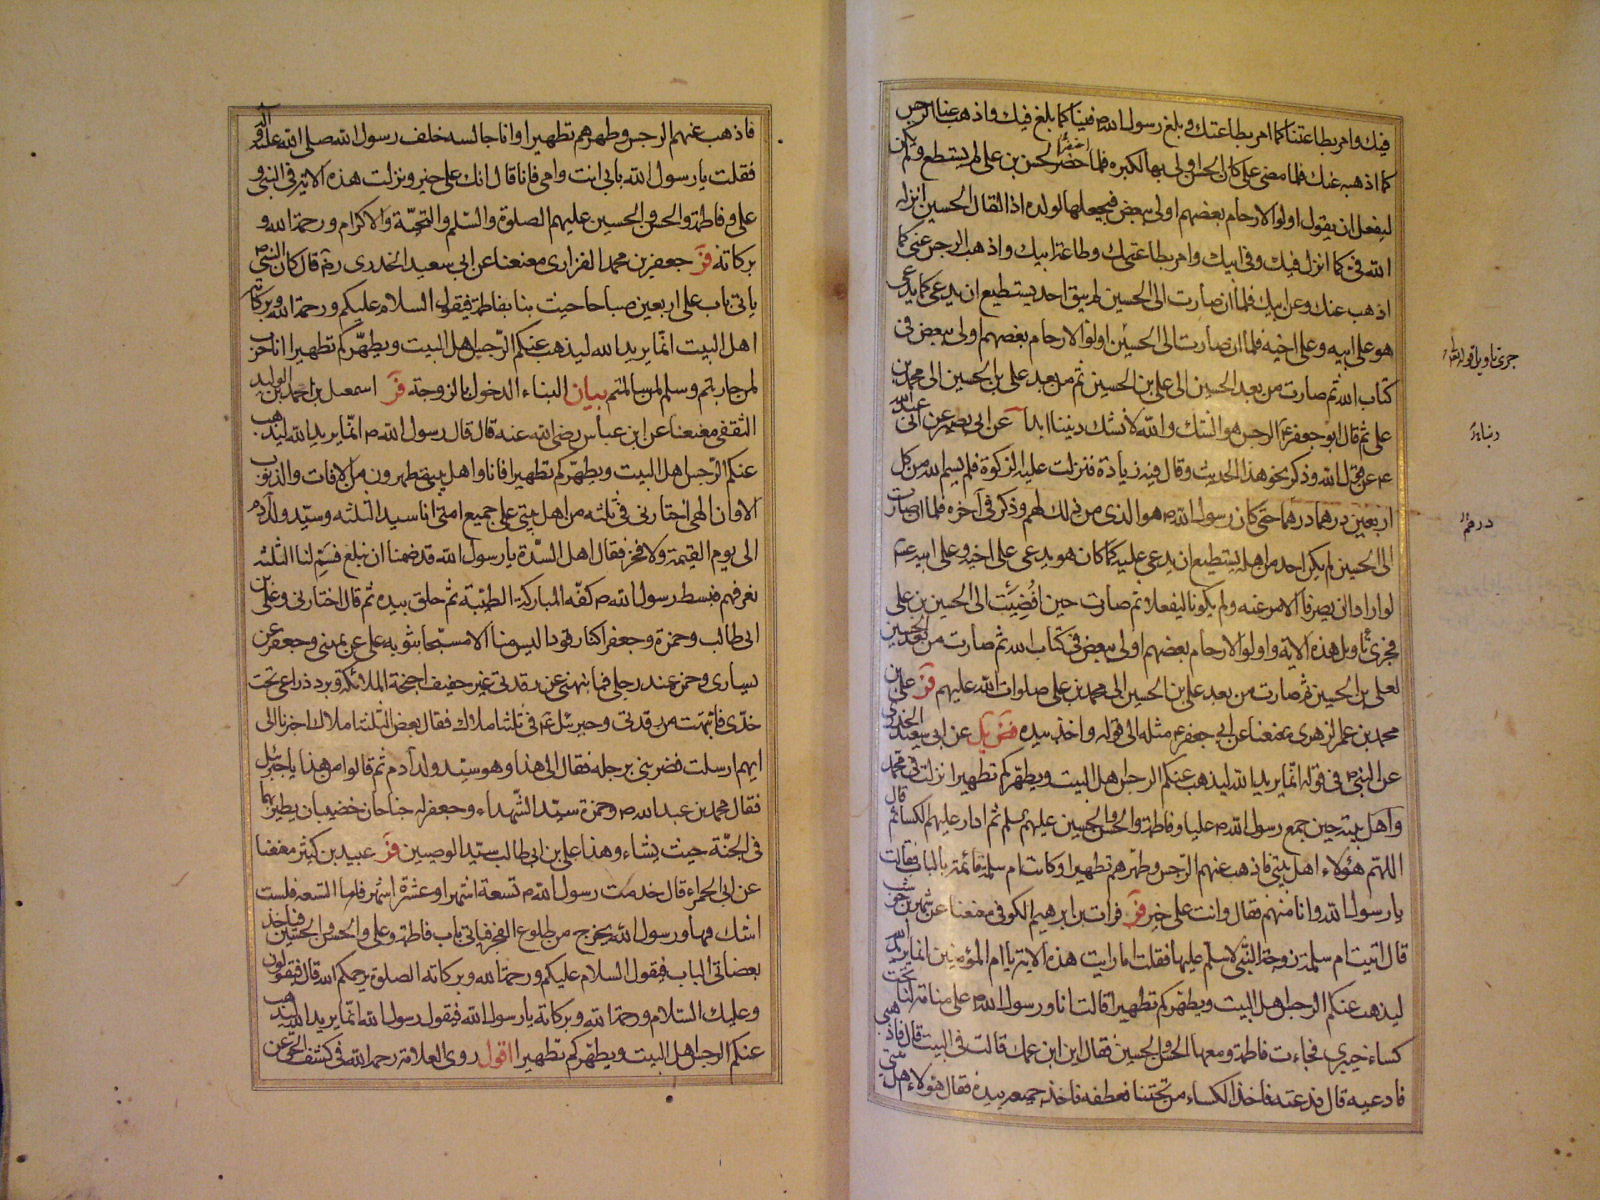 فيك وامر بطاعتنا كما امر بطاعتك و بلغ رسول الله ص فينا كما بلغ فيك واذهب عنا الرجس
كما اذهبه عنك فلما مضى على كان الحسن اولى بها لكبره فلما حضر الحسن بن على لم يستطع ولم يكن
ليفعل ان يقول اولوا الارحام بعضهم اولى ببعض فيجعلها لولده اذا لقال الحسين انزل
الله فى كما انزل فيك وفى ابيك وامر بطاعتى كما امر بطاعتك وطاعة ابيك واذهب الرجس عنى كما
اذهب عنك وعن ابيك فلما ان صارت الى الحسين لم يبق احد يستطيع ان يدعى كما يدعى
هو على ابيه وعلى اخيه فلما ان صارت الى الحسين اولوا الارحام بعضهم اولى ببعض فى
كتاب الله ثم صارت من بعد الحسين الى على بن الحسين ثم من بعد على بن الحسين الى محمد بن
على ثم قال ابو جعفر ع الرجس هو الشك والله لا نشك فى ديننا ابدا عن ابى بصير عن ابى عبد الله
ع عن قول الله وذكر نحو هذا الحديث وقال فيه زيادة فنزلت عليه الزكوة فلم يسم الله من كل
اربعين درهما درهما حتى كان رسول الله ص هو الذى من ذلك لهم وذكر فى آخره فلما ان صارت
الى الحسين لم يكن احد من اهله يستطيع ان يدعى عليه كما كان هو يدعى على اخيه وعلى ابيه ع
لو ارادا ان يصرفا الامر عنه ولم يكونا ليفعلا ثم صارت حين افضيت الى الحسين بن على
فجرى تأويل هذه الاية واولوا الارحام بعضهم اولى ببعض فى كتاب الله ثم صارت من بعد الحسين
لعلى بن الحسين ثم صارت من بعد على بن الحسين الى محمد بن على صلوات الله عليهم فر على بن
محمد بن عمر الزهرى معنعنا عن ابى جعفر ع مثله الى قوله واخذ بيده عن ابى سعيد الخدرى
عن النبى ص فى قوله انما يريد الله ليذهب عنكم الرجس اهل البيت ويطهركم تطهيرا نزلت فى محمد
واهل بيته حين جمع رسول الله ص عليا وفاطمة والحسن والحسين عليهم سلم ثم ادار عليهم الكساء ثم قال
اللهم هؤلاء اهل بيتى فاذهب عنهم الرجس وطهرهم تطهيرا وكانت ام سلمة قائمة بالباب فقالت
يا رسول الله وانا منهم فقال وانت على خير فر فرات بن ابرهيم الكوفى معنعنا عن شهر بن حوشب
قال اتيت ام سلمة زوجة النبى لاسلم عليها فقلت اما رايت هذه الاية يا ام المؤمنين انما يريد الله
ليذهب عنكم الرجس اهل البيت ويطهركم تطهيرا قالت انا ورسول الله ص على منامة لنا تحت
كساء خيبرى فجاءت فاطمة ومعها الحسن والحسين فقال اين ابن عمك قالت فى البيت قال فاذهبى
فادعيه قال فدعته فاخذ الكساء من تحتنا فعطفه فاخذ جميعه بيده فقال هؤلاء اهل بيتى
جرى تاويل قوله تعالى
درهم
فاذهب عنهم الرجس وطهرهم تطهيرا وانا جالسه خلف رسول الله صلى الله عليه وآله
فقلت يا رسول الله بابى انت وامى فانا قال انك على خير ونزلت هذه الاية فى النبى و
على وفاطمة والحسن والحسين عليهم الصلوة والسلم والتحية والاكرام ورحمة الله و
بركاته فر جعفر بن محمد الفزارى معنعنا عن ابى سعيد الخدرى رض قال كان النبى ص
ياتى باب على اربعين صباحا حيث بنا بفاطمة فيقول السلام عليكم ورحمة الله وبركاته
اهل البيت انما يريد الله ليذهب عنكم الرجس اهل البيت ويطهركم تطهيرا انا حرب
لمن حاربتم وسلم لمن سالمتم بيان البناء الدخول بالزوجة فر اسمعيل بن احمد بن الوليد
الثقفى معنعنا عن ابن عباس رضى الله عنه قال قال رسول الله ص انما يريد الله ليذهب
عنكم الرجس اهل البيت ويطهركم تطهيرا فانا واهل بيتى مطهرون من الافات والذنوب
الا وان الهى اختارنى فى ثلثه من اهل بيتى على جميع امتى انا سيد الثلثه وسيد ولد آدم
الى يوم القيمة ولا فخر فقال اهل السدة يا رسول الله قد ضمنا ان نبلغ فسم لنا الثلثه
نعرفهم فبسط رسول الله ص كفه المباركة الطيبة ثم حلق بيده ثم قال اختارنى وعلى بن
ابى طالب وحمزة وجعفرا كنا رقودا ليس منا الا مسجا بثوبه على عن يمينى وجعفر عن
يسارى وحمزة عند رجلى فما نبهنى عن رقدتى غير حفيف اجنحة الملائكة وبرد ذراعى تحت
خدى فانتبهت من رقدتى وجبرئيل ع فى ثلثة املاك فقال بعض الثلثة املاك اخبرنا الى
ايهم ارسلت فضربنى برجله فقال الى هذا وهو سيد ولد آدم ثم قالوا من هذا يا جبرئيل
فقال محمد بن عبد الله ص وحمزة سيد الشهداء وجعفر له جناحان خضيبان يطير بهما
فى الجنة حيث يشاء وهذا على بن ابى طالب سيد الوصيين فر عبيد بن كثير معنعنا
عن ابى الحمراء قال خدمت رسول الله ص تسعة اشهر او عشرة اشهر فاما التسعه فلست
اشك فيها ورسول الله يخرج من طلوع الفجر فياتى باب فاطمة وعلى والحسن والحسين فياخذ
بعضادتى الباب فيقول السلام عليكم ورحمة الله وبركاته الصلوة يرحمكم الله قال فيقولون
وعليك السلام ورحمة الله وبركاته يا رسول الله فيقول رسول الله انما يريد الله ليذهب
عنكم الرجس اهل البيت ويطهركم تطهيرا اقول روى العلامة رحمه الله فى كشف الحق عن